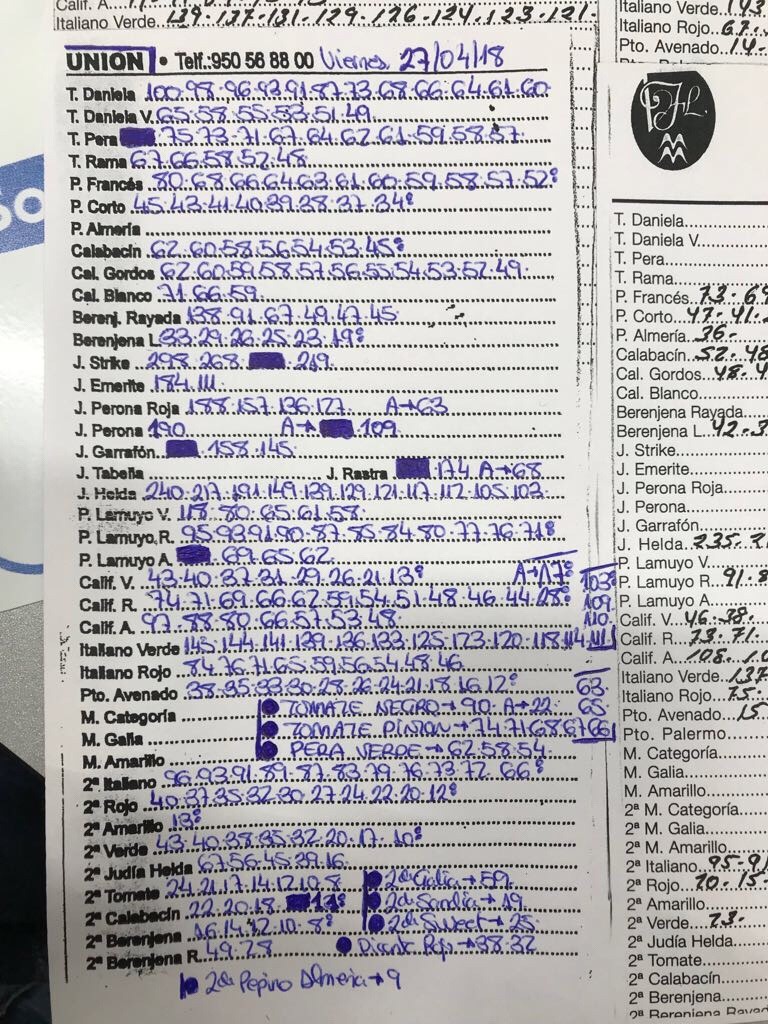 Calif. A
Italiano Verde.139.137.131.129.126.124.123.121.
UNION • Telf.:950 56 88 00 Viernes 27/04/18
T. Daniela 100.98.96.93.91.87.73.68.66.64.61.60
T. Daniela V. 65.58.55.53.51.49
T. Pera 75.73.71.67.64.62.61.59.58.57
T. Rama 67.66.58.52.48
P. Francés 80.68.66.64.63.61.60.59.58.57.52º
P. Corto 45.43.41.40.39.38.37.34º
P. Almería
Calabacín 62.60.58.56.54.53.45º
Cal. Gordos 62.60.59.58.57.56.55.54.53.52.49
Cal. Blanco 71.66.59
Berenj. Rayada 138.91.67.49.47.45
Berenjena L. 33.29.26.25.23.19º
J. Strike 298.268. 219
J. Emerite 184.111
J. Perona Roja 188.157.136.127 A→63
J. Perona 190 A→ 109
J. Garrafón 158.145
J. Tabella J. Rastra 174 A→68
J. Helda 240.217.191.149.139.129.121.117.112.105.103
P. Lamuyo V. 118.80.65.61.58
P. Lamuyo R. 95.93.91.90.87.85.84.80.77.76.71º
P. Lamuyo A. 69.65.62
Calif. V. 43.40.37.31.29.26.21.13º A→17º
Calif. R. 74.71.69.66.62.59.54.51.48.46.44.28º
Calif. A. 97.88.80.66.57.53.48
103º
109
110
Italiano Verde 145.144.141.139.136.133.125.123.120.118.114.111
Italiano Rojo 84.76.71.65.59.56.54.48.46
Pto. Avenado 38.35.33.30.28.26.24.21.18.16.12º
M. Categoría • TOMATE NEGRO→90 A→22
63
65
M. Galia • TOMATE PINTON→74.71.68.67.66
M. Amarillo • PERA VERDE→62.58.54
2ª Italiano 96.93.91.89.87.83.79.76.73.72.66º
2ª Rojo 40.37.35.32.30.27.24.22.20.12º
2ª Amarillo 13º
2ª Verde 43.40.38.35.32.20.17.10º
2ª Judía Helda 67.56.45.39.16
2ª Tomate 24.21.17.14.12.10.8 • 2da Galia→59
2ª Calabacín 22.20.18 • 2da Sandía→19
2ª Berenjena 16.14.12.10.8º • 2da Sweet→25
2ª Berenjena R. 49.28 • Picante Rojo→38.32
• 2da Pepino Almeria→9
Italiano Verde.143
Italiano Rojo.67.
Pto. Avenado.14.
JL
T. Daniela
T. Daniela V.
T. Pera
T. Rama
P. Francés.73.69
P. Corto.47.41.
P. Almería.36-
Calabacín.52.48
Cal. Gordos.48.4
Cal. Blanco
Berenjena Rayada
Berenjena L.42.3
J. Strike
J. Emerite
J. Perona Roja
J. Perona
J. Garrafón
J. Helda.235.2
P. Lamuyo V.
P. Lamuyo R.91.8
P. Lamuyo A.
Calif. V.46.38.
Calif. R.73.71
Calif. A.108.10
Italiano Verde.137
Italiano Rojo.75.
Pto. Avenado.15
Pto. Palermo
M. Categoría
M. Galia
M. Amarillo
2ª M. Categoría
2ª M. Galia
2ª M. Amarillo
2ª Italiano.95-9
2ª Rojo.20.15-
2ª Amarillo
2ª Verde.23.
2ª Judía Helda
2ª Tomate
2ª Calabacín
2ª Berenjena
2ª Berenjena Rayad